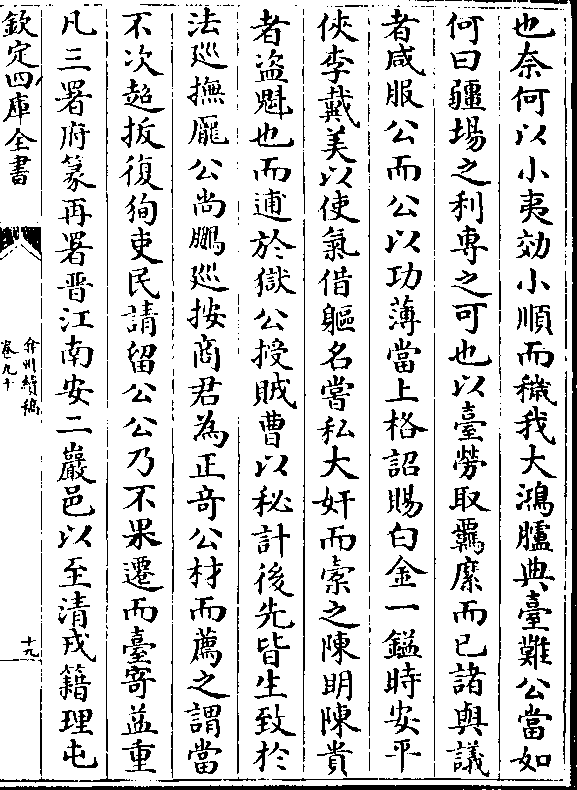 也奈何以小夷効小順而穢我大鴻臚典臺難公當如
何曰疆埸之利專之可也以臺勞取羈縻而已諸與議
者咸服公而公以功薄當上格詔賜白金一鎰時安平
俠李戴美以使氣借軀名嘗私大奸而索之陳明陳貴
者盜魁也而逋於獄公授賊曹以秘計後先皆生致於
法廵撫龎公尚鵬廵按商君為正竒公材而薦之謂當
不次超拔復徇吏民請留公公乃不果遷而臺寄益重
凡三署府篆再署晋江南安二巖邑以至清戎籍理屯
欽定四庫全書
弇州續稿
卷九十
十九